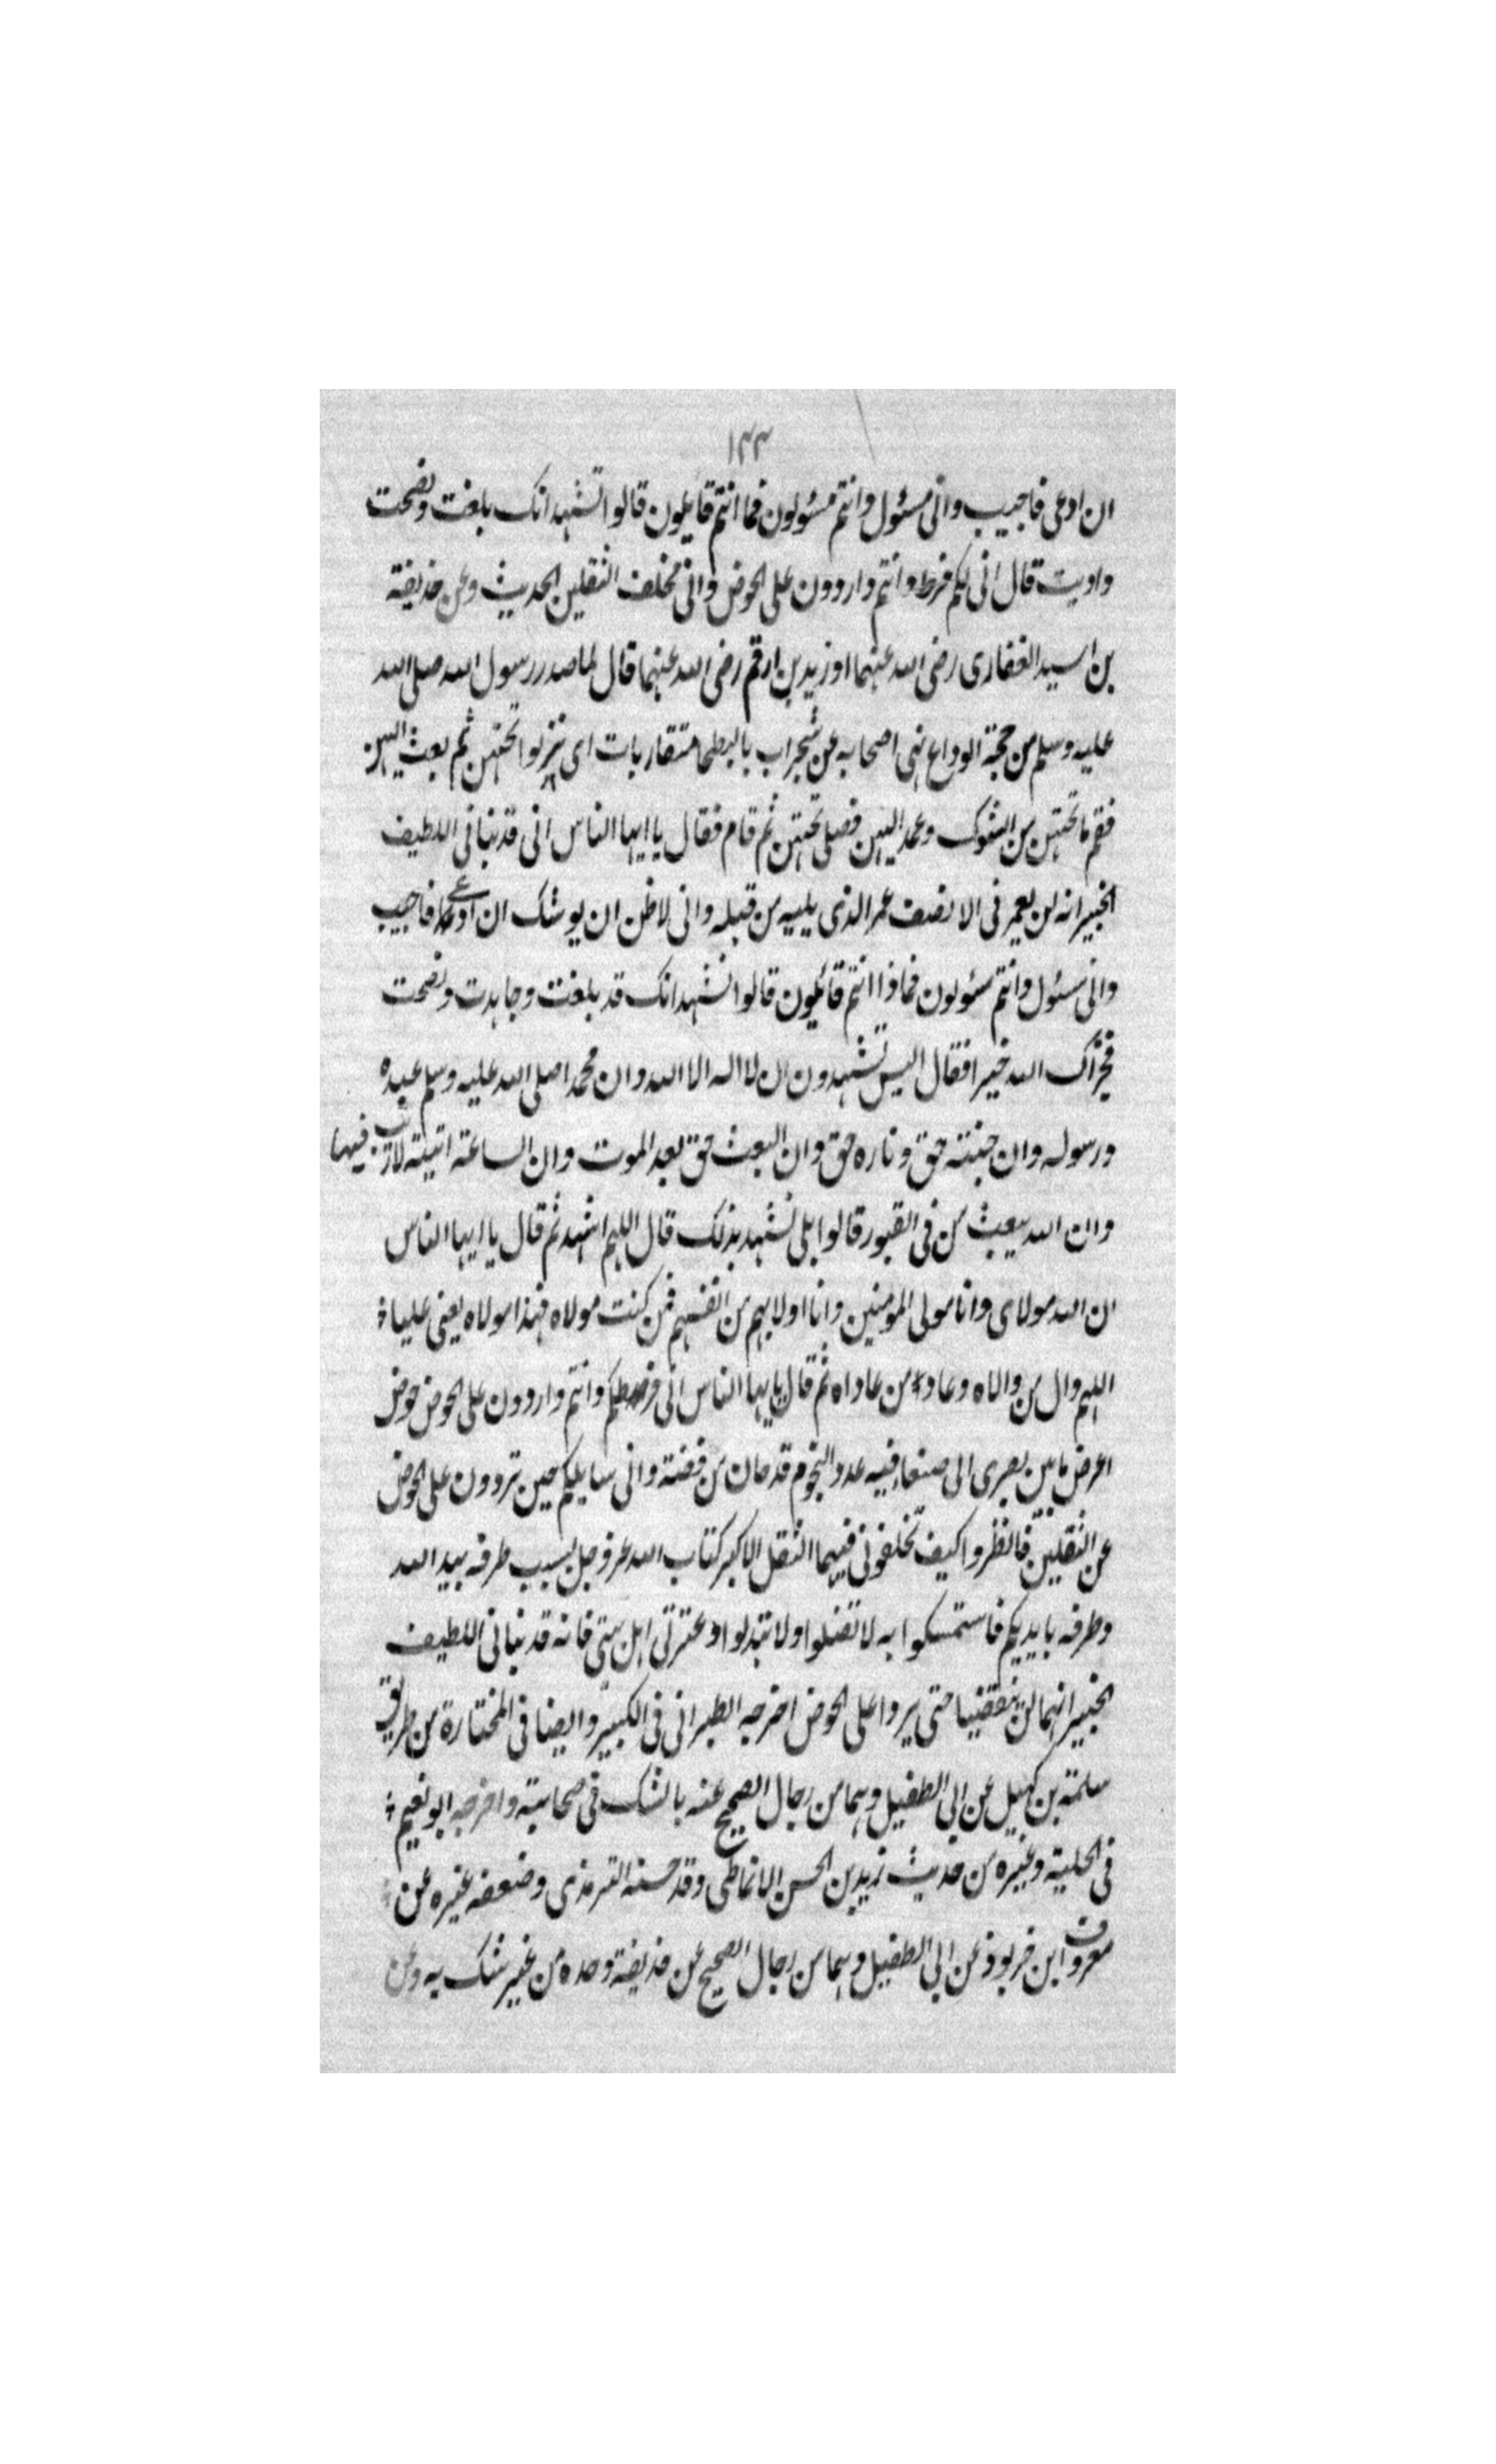 ١٣٣
ان ادعى فاجيب وانى مسئول وانتم مسئولون فما انتم قايلون قالوا نشهد انك بلغت ونصحت
واديت قال انى لكم فرط وانتم واردون على الحوض وانى مخلف الثقلين الحديث وعن حذيفة
بن اسيد الغفارى رضى الله عنهما او زيد بن ارقم رضى الله عنهما قال لما صدر رسول الله صلى الله
عليه وسلم من حجة الوداع نهى اصحابه عن شجراب بالبطحا متقاربات اى ينزلوا تحتهن ثم بعث اليهن
فقم ما تحتهن من الشوك وعمد اليهن فصلى تحتهن ثم قام فقال يا ايها الناس انى قد نبانى اللطيف
الخبير انه لن يعمر نى الا نصف عمر الذى يليه من قبله وانى لاظن ان يوشك ان ادعى فاجيب
وانى مسئول وانتم مسئولون فما ذا انتم قائلون قالوا نشهد انك قد بلغت وجاهدت ونصحت
فجزاك الله خيرا فقال اليس تشهدون ان لا اله الا الله وان محمدا صلى الله عليه وسلم عبده
ورسوله وان جنته حق وناره حق وان البعث حق بعد الموت وان الساعة اتية لا ريب فيها
وان الله يبعث من فى القبور قالوا بلى نشهد بذلك قال اللهم اشهد ثم قال يا ايها الناس
ان الله مولاى وانا مولى المومنين وانا اولا بهم من انفسهم فمن كنت مولاه فهذا مولاه يعنى عليا
اللهم وال من والاه وعاد من عاداه ثم قال يايها الناس انى فرطكم وانتم واردون على الحوض حوض
اعرض ما بين بصرى الى صنعاء فيه عدد النجوم قدحان من فضة وانى سايلكم حين تردون على الحوض
عن الثقلين فانظروا كيف تخلفونى فيهما الثقل الاكبر كتاب الله عز وجل بسبب طرفه بيد الله
وطرفه بايديكم فاستمسكوا به لا تضلوا ولا تبدلوا وعترتى اهل بيتى فانه قد نبانى اللطيف
الخبير انهما لن ينقضيا حتى يردا على الحوض اخرجه الطبرانى فى الكبير والضيا فى المختارة من طريق
سلمة بن كهيل عن ابى الطفيل وهما من رجال الصحيح عنه بالشك فى صحابيه واخرجه ابو نعيم
فى الحلية وغيره من حديث زيد بن الحسن الانماطى وقد حسنه الترمذى وضعفه غيره عن
معروف ابن خربوذ عن ابى الطفيل وهما من رجال الصحيح عن حذيفة وحده من غير شك به وعن